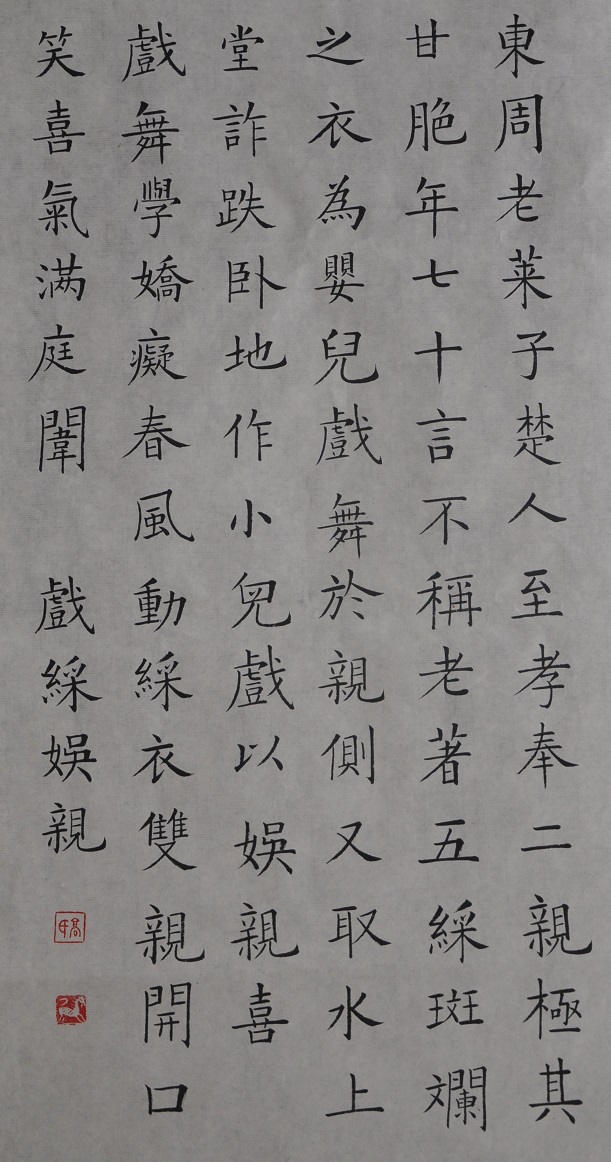 東周老莱子楚人至孝奉二親極其
甘脆年七十言不稱老著五綵斑斕
之衣為嬰兒戲舞於親側又取水上
堂詐跌卧地作小兒戲以娛親喜
戲舞學嬌癡春風動綵衣雙親開口
笑喜氣满庭闈 戲綵娛親